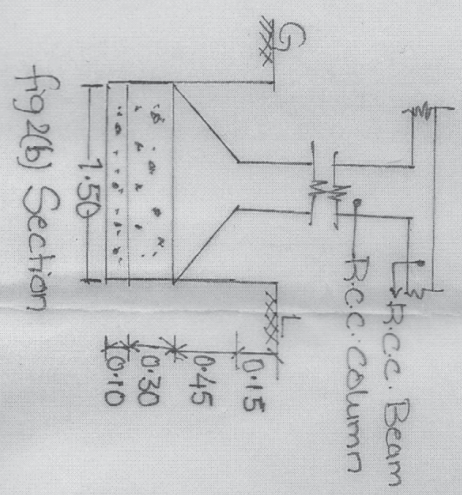 R.C.C. Beam
R.C.C. Column
G
L
0.15
0.45
0.30
0.10
1.50
fig 2(b) Section